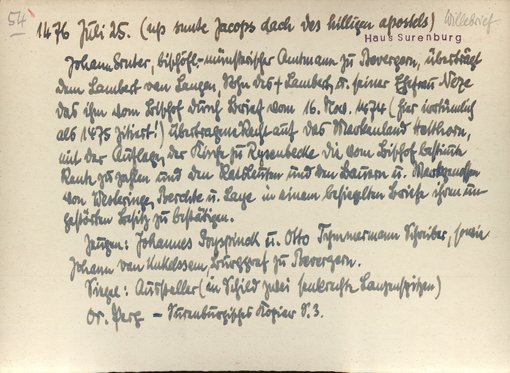 54
1476 Juli 25. (up sunte Jacops dach des hilligen apostels) Willebrief
Haus Surenburg
Johann Sruter, bischöfl.-münsterischer Amtmann zu Bevergern, überträgt
dem Lambert van Langen, Sohn des † Lambert, u. seiner Ehefrau Neze
das ihm vom Bischof durch Brief vom 16. Nov. 1474 (hier irrtümlich
als 1475 zitiert!) übertragene Recht auf das Markenland Helthorn,
mit der Auflage, der Kirche zu Rysenbecke die vom Bischof bestimmte
Rente zu zahlen und den Ratsleuten und den Bauern u. Markgenossen
von Westeringe, Berchte u. Lage in einem besiegelten Briefe ihren un-
gestörten Besitz zu bestätigen.
Zeugen: Johannes Boysprinck u. Otto Tymmermann Schreiber, sowie
Johann van Unkelssem, Burggraf zu Bevergern.
Siegel: Aussteller (im Schild zwei senkrechte Lanzenspitzen)
Or. Perg. – Surenburgisches Kopiar S. 3.